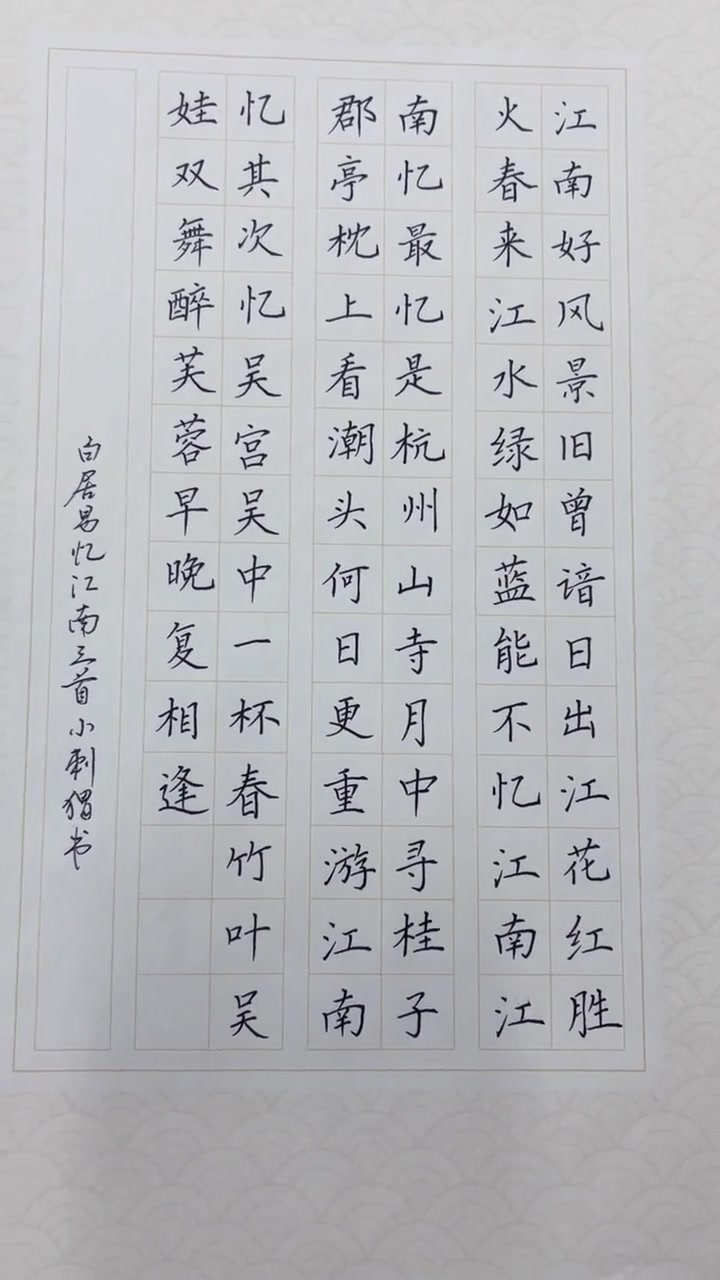 江南好风景旧曾谙日出江花红胜
火春来江水绿如蓝能不忆江南江
南忆最忆是杭州山寺月中寻桂子
郡亭枕上看潮头何日更重游江南
忆其次忆吴宫吴中一杯春竹叶吴
娃双舞醉芙蓉早晚复相逢
白居易忆江南三首小刺猬书